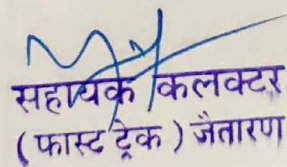 सहायक कलक्टर
( फास्ट ट्रेक ) जैतारण